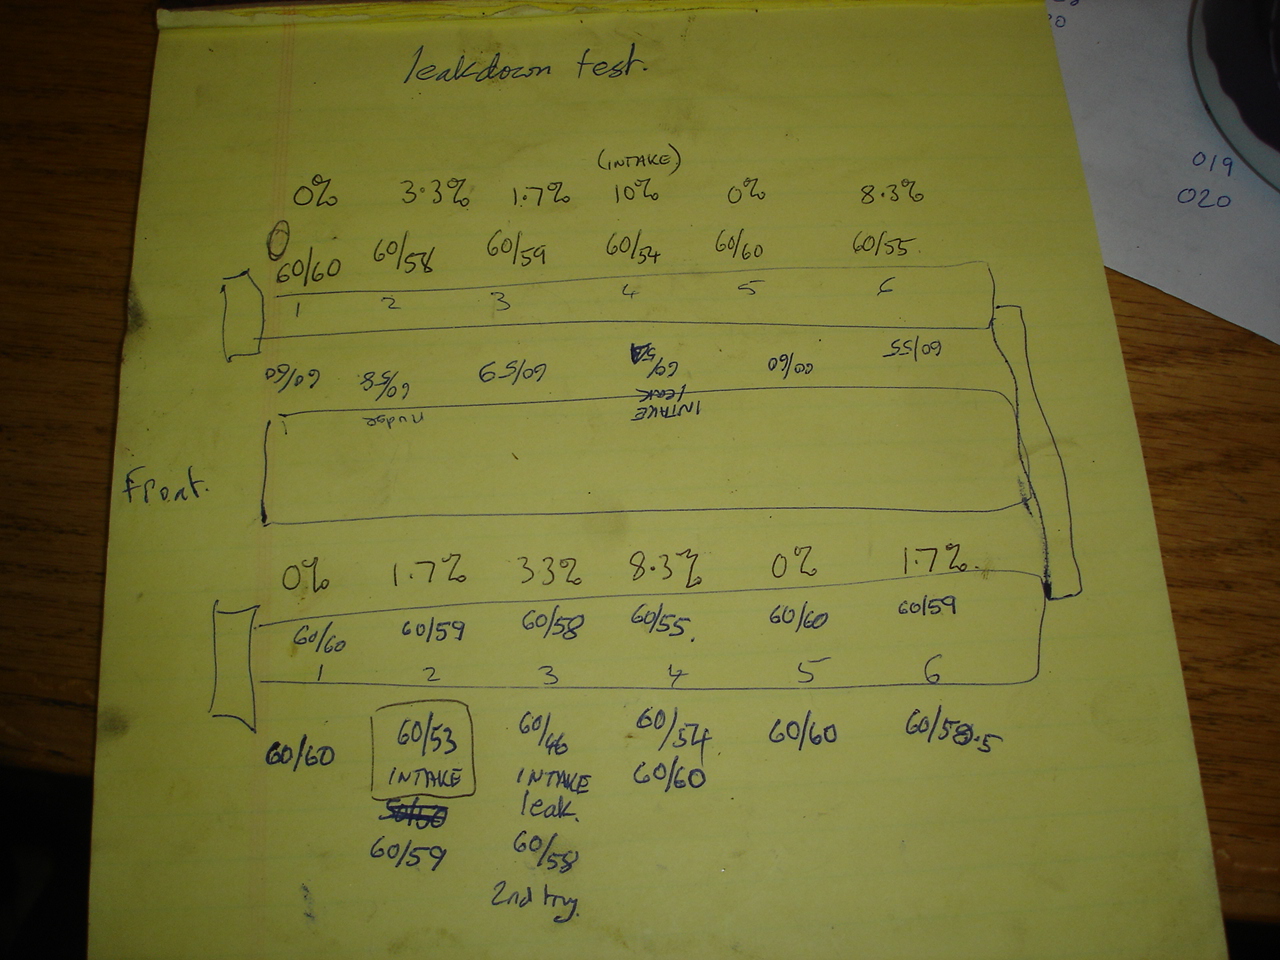 leakdown test.
(INTAKE)
0% 3.3% 1.7% 10% 0% 8.3%
60/60 60/58 60/59 60/54 60/60 60/55
1 2 3 4 5 6
60/60 60/58 60/59 60/54 60/60 60/55
INTAKE
leak
1
Front.
0% 1.7% 33% 8.3% 0% 1.7%.
60/60 60/59 60/58 60/55. 60/60 60/59
1 2 3 4 5 6
60/60 60/53 60/46 60/54 60/60 60/58.5
INTAKE INTAKE 60/60
leak.
60/59 60/58
2nd try.
019
020